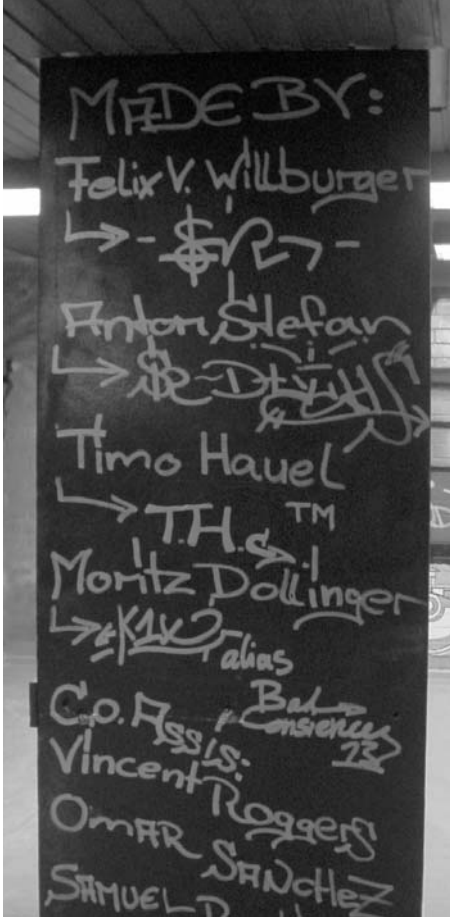 MADE BY:
Felix V. Willburger
Anton Stefan
Timo Hauel
T.H.
TM
Moritz Dollinger
K1X
alias
Co. Assis:
Bad
Consiences
13
Vincent Roggers
OMAR SANCHEZ
SAMUEL